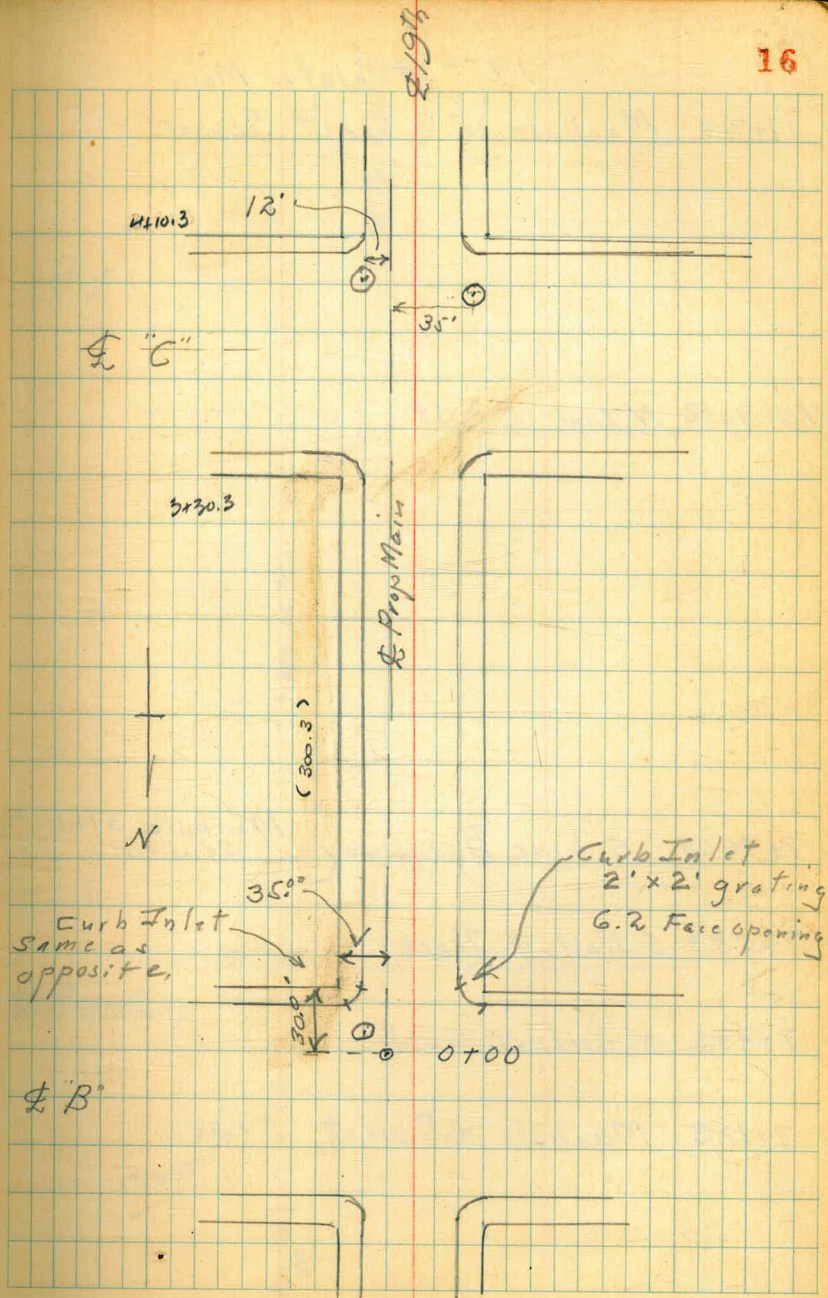 16
℄ 19th
4+10.3
12'
35'
℄ "C"
3+30.3
℄ Prop Main
(300.3)
N
Curb Inlet
2' x 2' grating
6.2 Face opening
35.00
Curb Inlet
Same as
opposite.
30.0'
0+00
℄ "B"